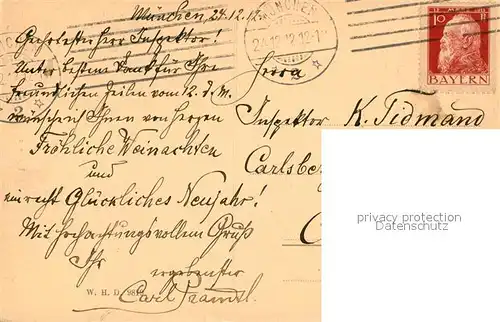 München, 24.12.12.
Geehrtester Herr Inspektor!
Unter bestem Dank für Ihre
freundlichen Zeilen vom 12. d. M.
wünsche ich Ihnen von Herzen
Fröhliche Weinachten
und
ein recht Glückliches Neujahr!
Mit hochachtungsvollem Gruß
Ihr
ergebenster
Carl
W. H. D. 98
Herrn
Inspektor K. Tidmand
Carlsbe
C
MÜNCHEN
24.12.12.12-1
10
BAYERN
privacy protection
Datenschutz